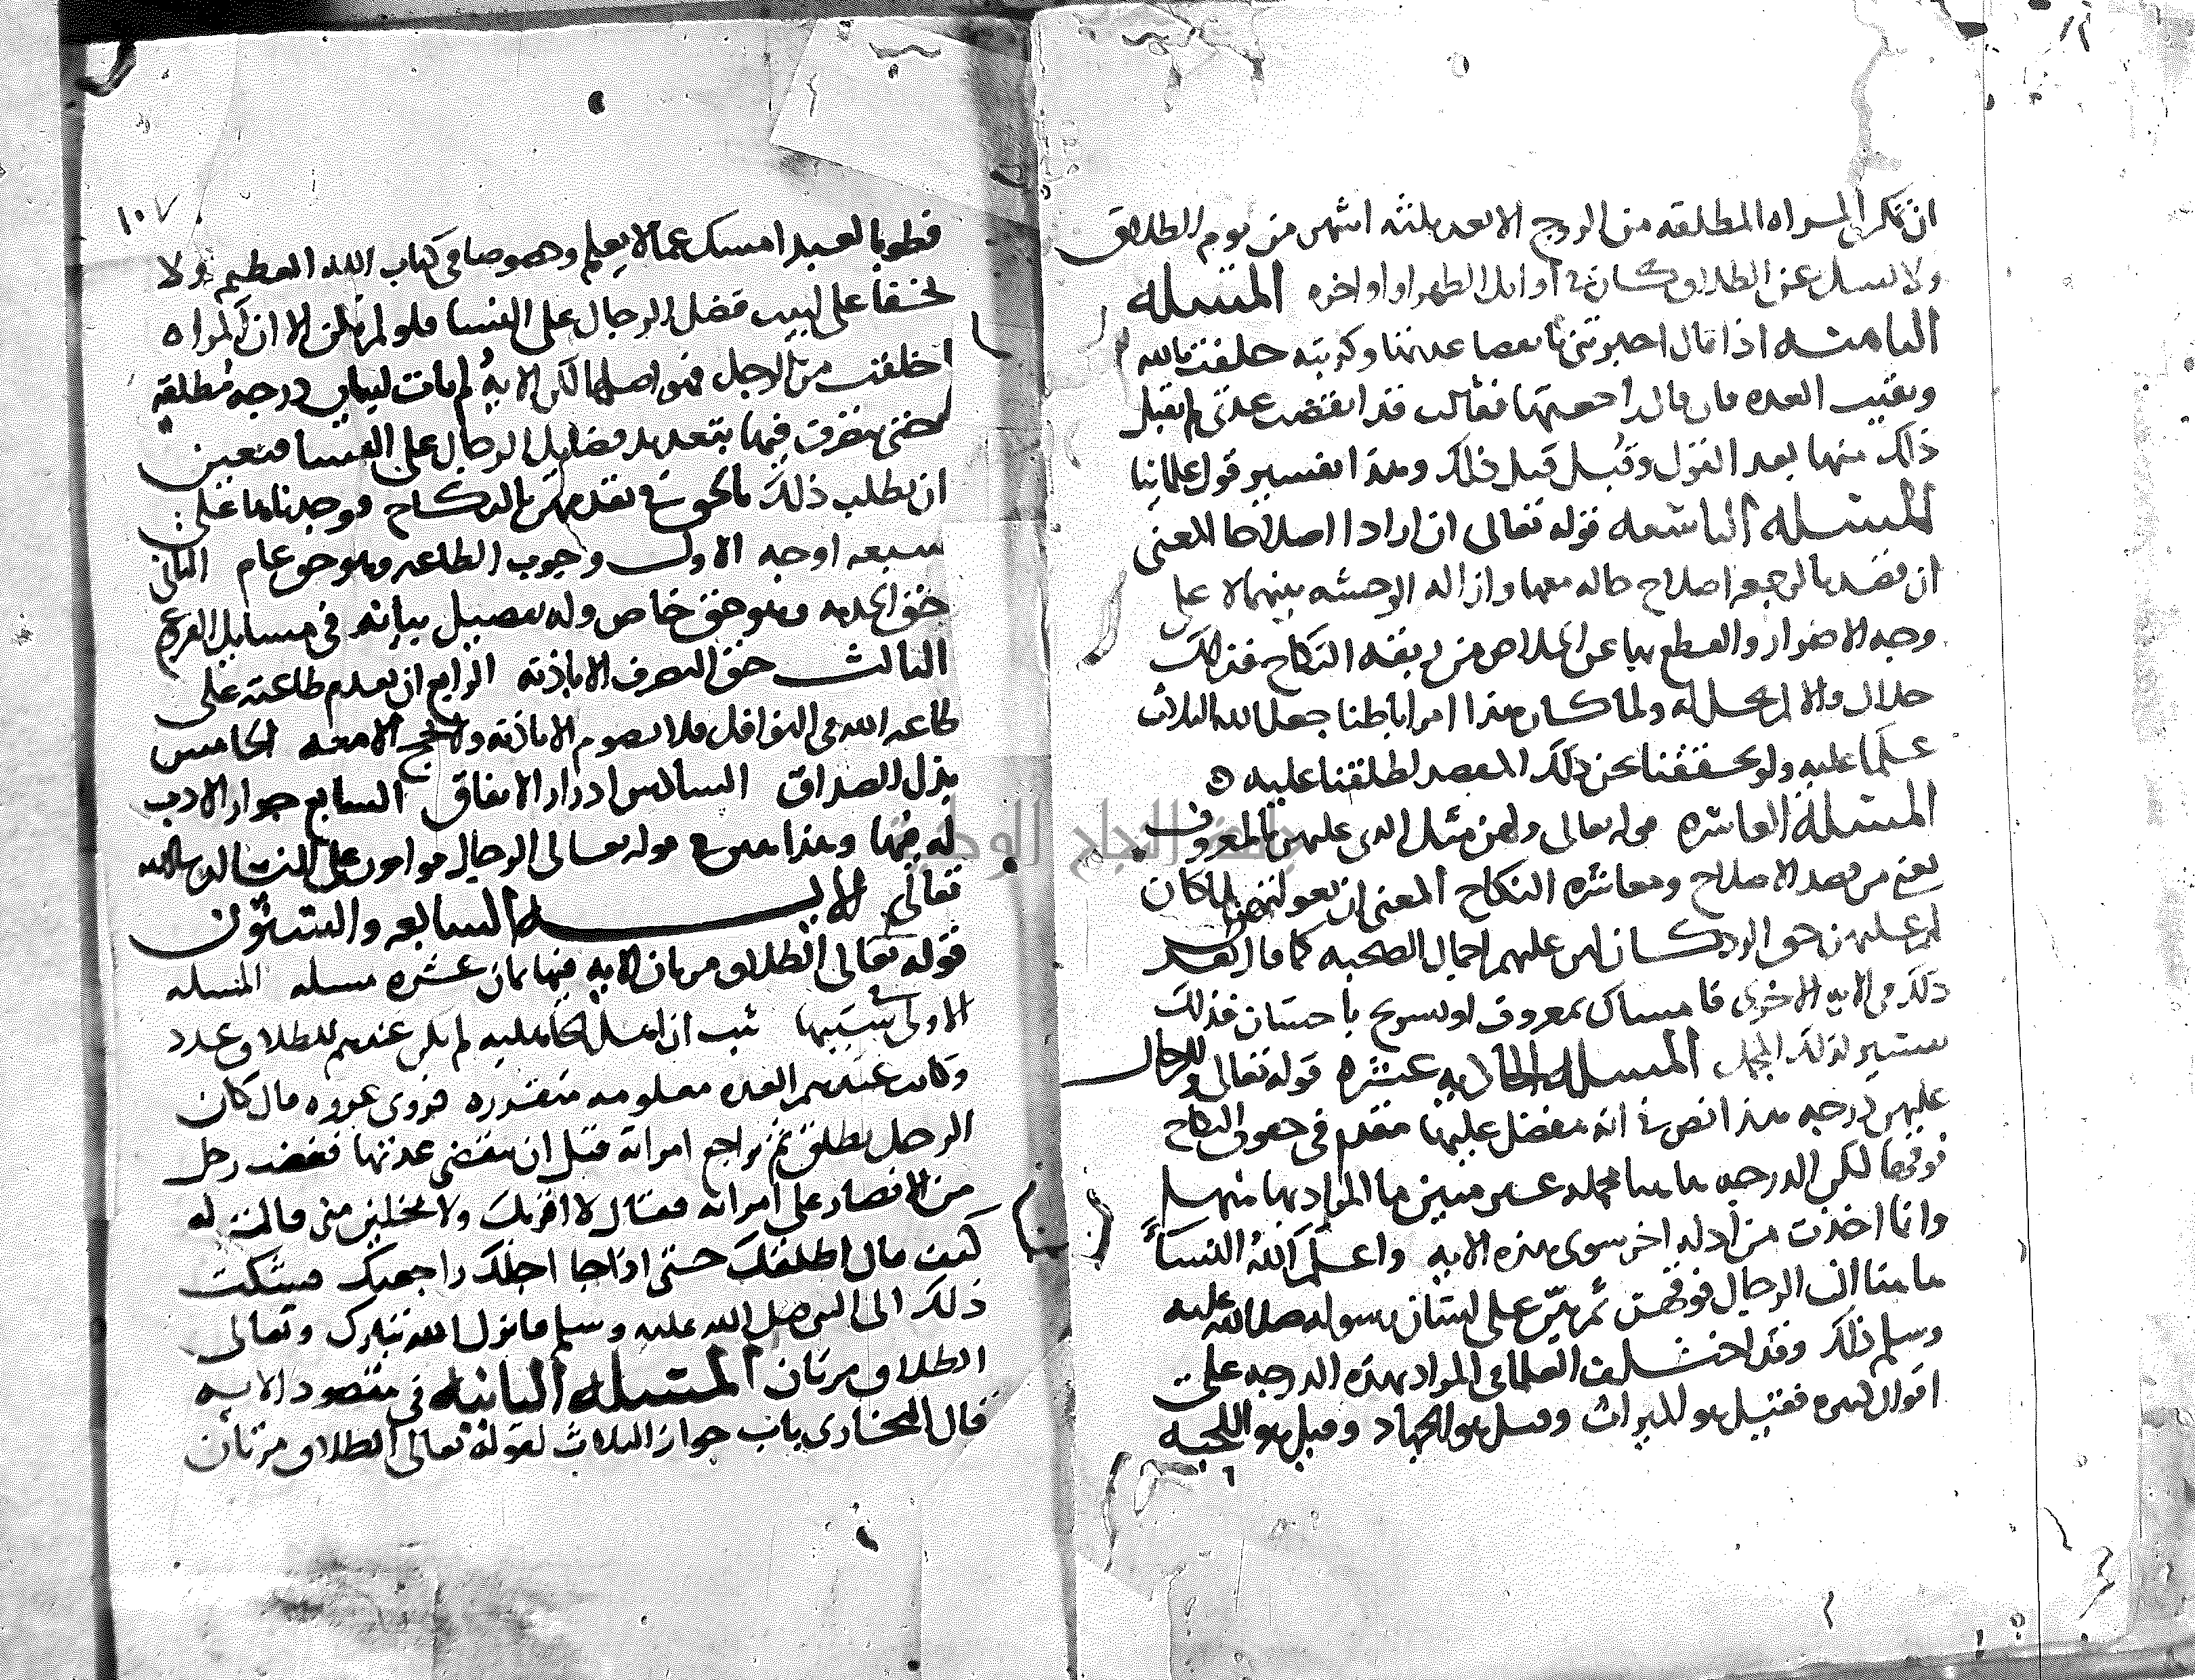 ان تنكر المراه المطلقه من الزوج الا بعد ثلثه اشهر من يوم الطلاق
ولا تسل عن الطلاق كان في اوايل الطهر او اواخره المسله
الثامنه اذا قال اخبرتني بانقضا عدتها وكذبته حلفت بالله
وبقيت العده فان قال راجعتها فقالت قد انقضت عدتي لم يقبل
ذلك منها بعد القول وقبل قبل ذلك وهذا تفسير قول علمائنا
المسله التاسعه قوله تعالى ان ارادوا اصلاحا المعنى
ان قصد بالرجعه اصلاح حاله معها وازاله الوحشه بينهما لا على
وجه الاضرار والقطع بها عن الخلاص من ربقه النكاح فذلك
حلال والا لم يحل له ولما كان هذا امرا باطنا جعل الله الثلاث
علما عليه ولو تحققنا نحن ذلك المقصد لطلقنا عليه ه
المسله العاشره قوله تعالى ولهن مثل الذي عليهن بالمعروف
يعني من قصد الاصلاح ومعاشره النكاح المعنى ان بعولتهن لما كان
لهم عليهن حق الرد كان لهن عليهم اجمال الصحبه كما قال بعد
ذلك في الايه الاخرى فامساك بمعروف او تسريح باحسان فذلك
تفسير لذلك المجمل المسله الحاديه عشره قوله تعالى وللرجال
عليهن درجه هذا نص في انه مفضل عليها مقدم في حقوق النكاح
فوقها لكن الدرجه هاهنا مجمله غير مبين ما المراد بها منها
وانما اخذت من ادله اخر سوى هذه الايه واعلم الله النساء
هاهنا ان الرجال فوقهن ثم بين على لسان رسوله صلى الله عليه
وسلم ذلك وقد اختلف العلما في المراد بهذه الدرجه على
اقوال كثيره فقيل هو الميراث وقيل هو الجهاد وقيل هو اللحيه
١٠٧
فطوبا لعبد امسك عما لا يعلم وخصوصا في كتاب الله العظيم ولا
يخفا على لبيب فضل الرجال على النسا فلو لم يكن الا ان المراه
خلقت من الرجل فهو اصلها لكن الايه لم يات لبيان درجه مطلقه
حتى يتصرف فيها بتعديد فضايل الرجال على النسا فتعين
ان يطلب ذلك بالحق في تقدمهن بالنكاح فوجدناها على
سبعه اوجه الاول وجوب الطاعه وهو حق عام الثاني
حق الخدمه وهو حق خاص وله تفصيل بيانه في مسايل الفروع
الثالث حق التصرف الا باذنه الرابع ان تقدم طاعته على
طاعه الله في النوافل فلا تصوم الا باذنه ولا تحج الا معه الخامس
بذل الصداق السادس ادرار الانفاق السابع جواز الادب
له فيها وهذا مبين في قوله تعالى الرجال قوامون على النسا ان شا الله
تعالى الايه السابعه والستون
قوله تعالى الطلاق مرتان الايه فيها ثمان عشره مسله المسله
الاولى في سببها ثبت ان اهل الجاهليه لم يكن عندهم للطلاق عدد
وكانت عندهم العده معلومه مقدره فروى عروه قال كان
الرجل يطلق ثم يراجع امراته قبل ان تنقضي عدتها فغضب رجل
من الانصار على امراته فقال لا اقربك ولا تخلين مني قالت له
كيف قال اطلقك حتى اذا جا اجلك راجعتك فشكت
ذلك الى النبي صلى الله عليه وسلم فانزل الله تبارك وتعالى
الطلاق مرتان المسله الثانيه في مقصود الايه
قال البخاري باب جواز الثلاث لقوله تعالى الطلاق مرتان